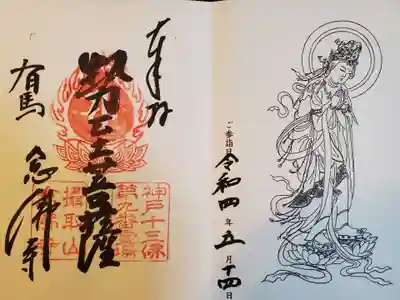 奉拝
勢至菩薩
有馬 念佛寺
神戸十三佛
第九番霊場
攝取山
ご参詣日 令和四年五月十四日